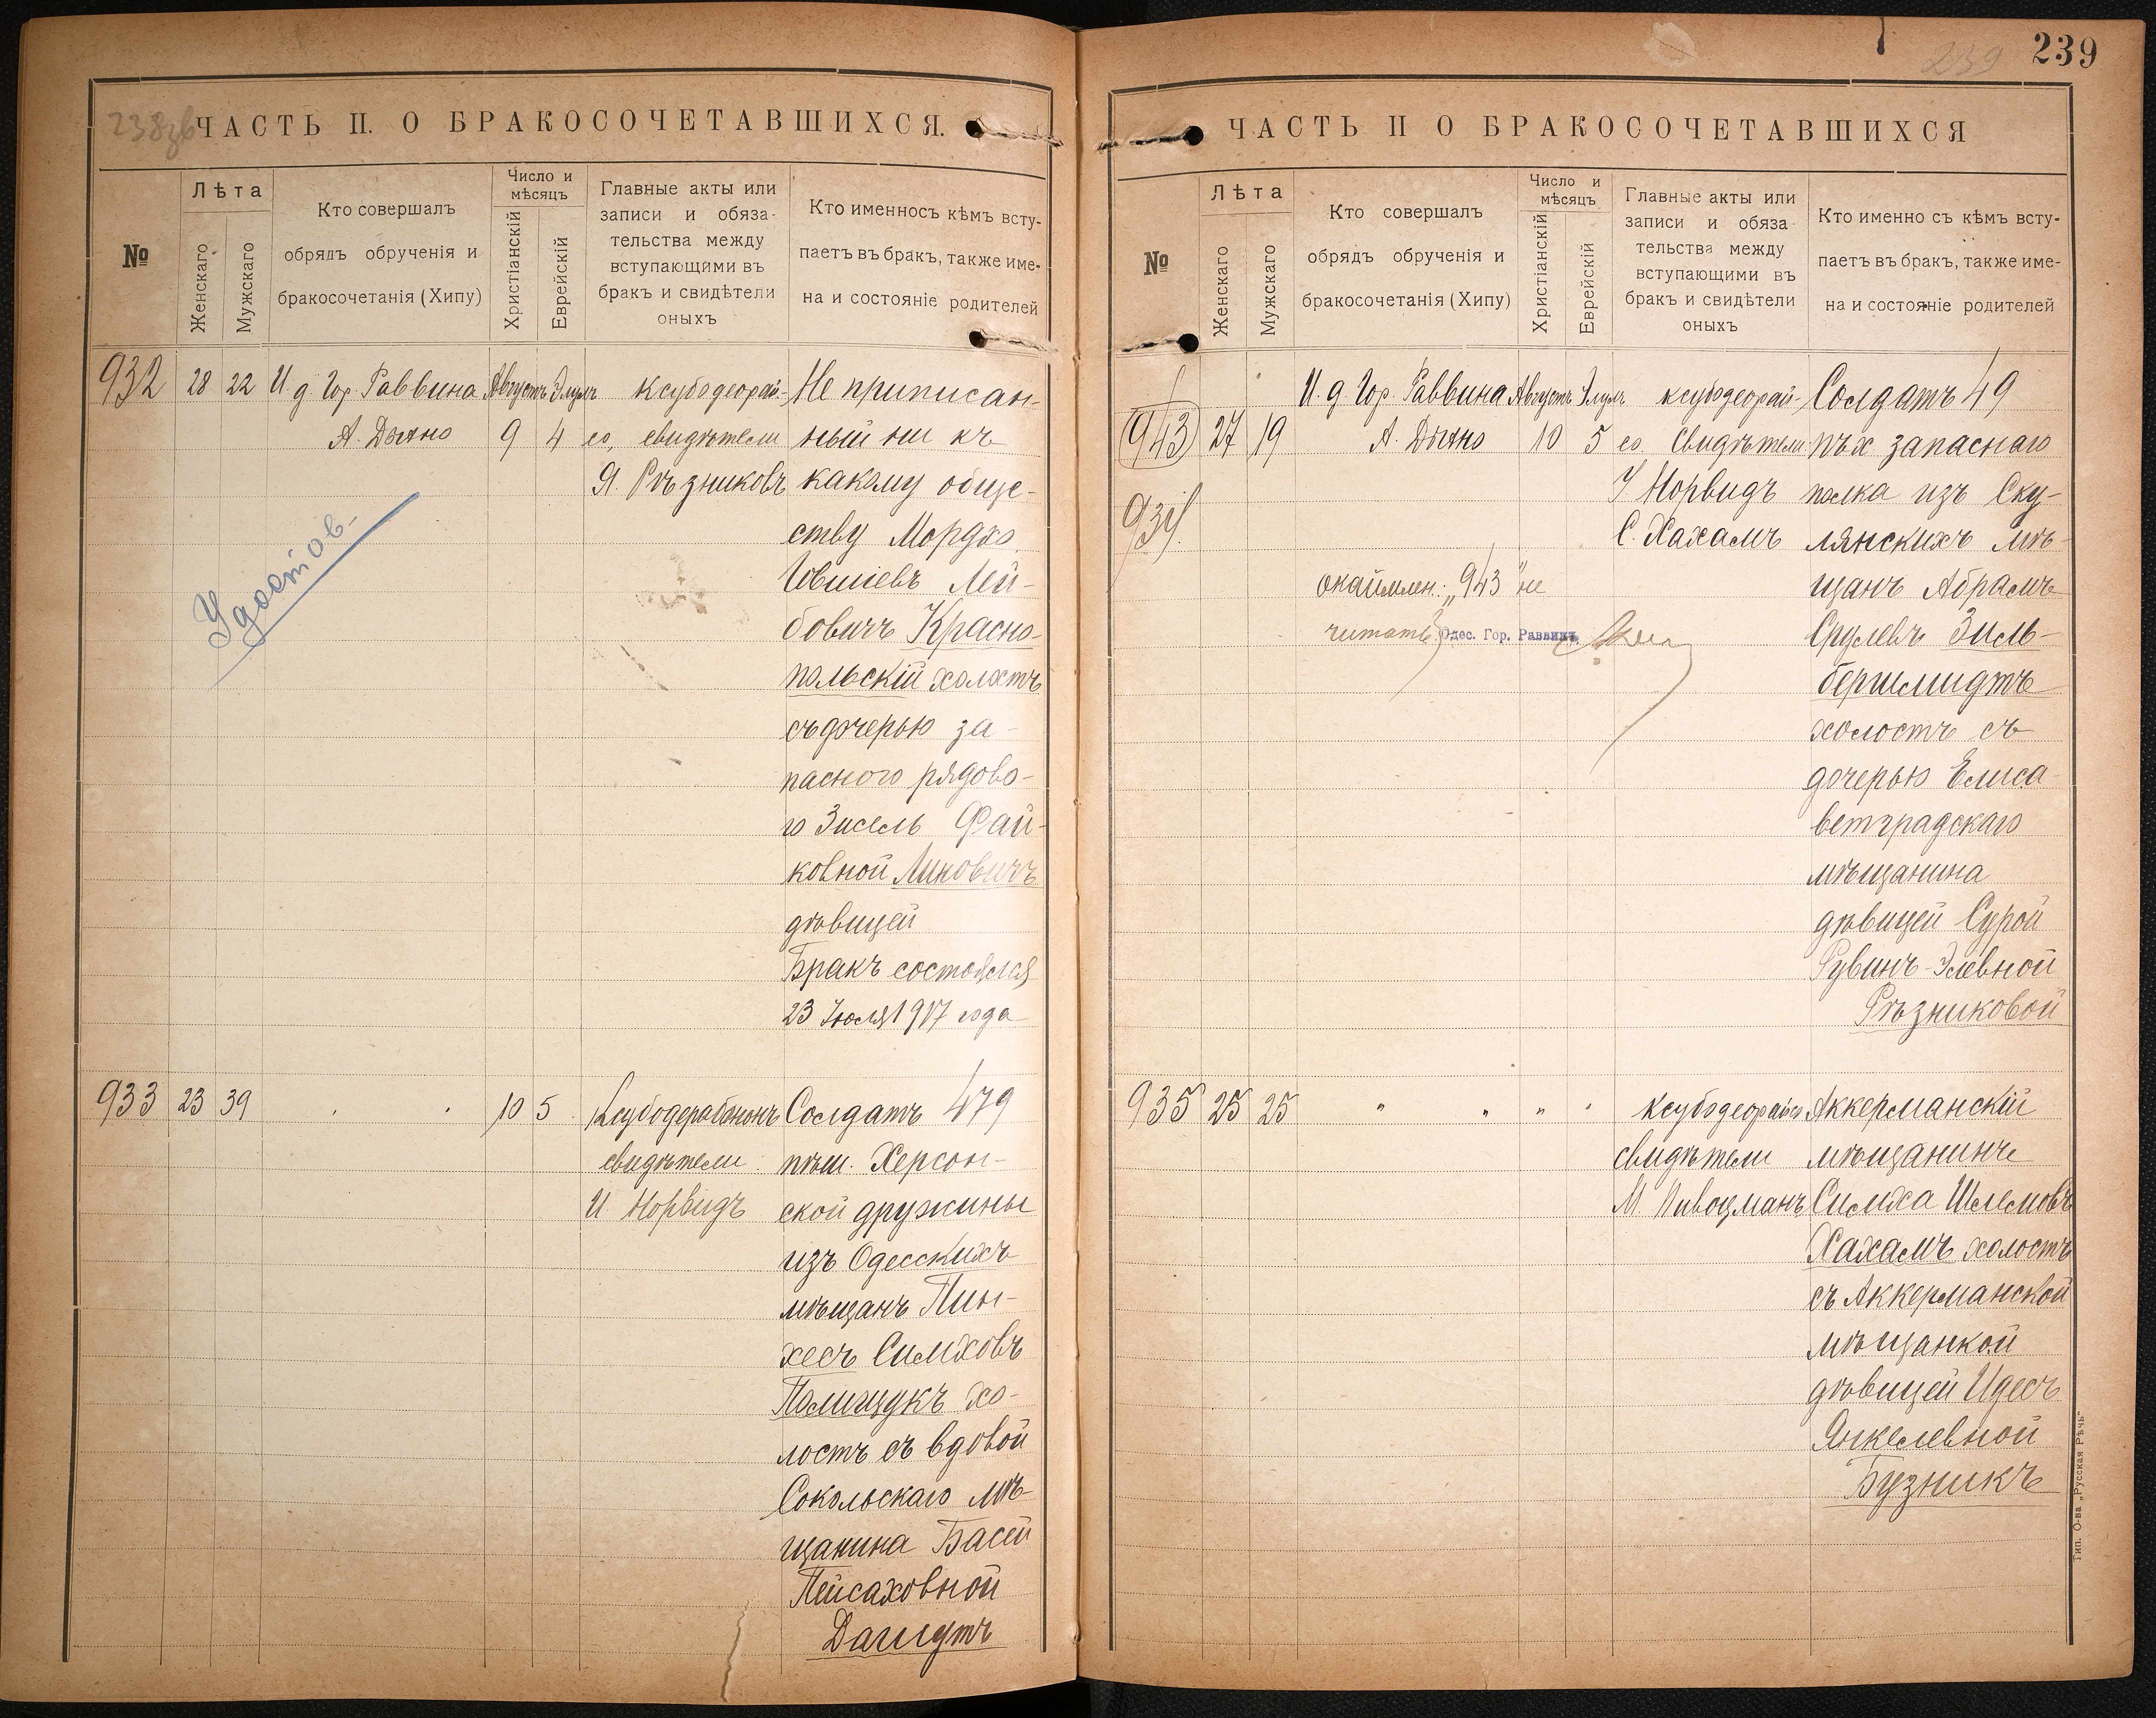 238зв
ЧАСТЬ II. О БРАКОСОЧЕТАВШИХСЯ.
№
Лѣта
Женскаго
Мужскаго
Кто совершалъ
обрядъ обрученія и
бракосочетанія (Хипу)
Число и
мѣсяцъ
Христіанскій
Еврейскій
Главные акты или
записи и обяза-
тельства между
вступающими въ
бракъ и свидѣтели
оныхъ
Кто именносъ кѣмъ всту-
паетъ въ бракъ, также име-
на и состояніе родителей
932 28 22 И. д. Гор. Раввина Августъ Элулъ ксубодеорай-
А. Дыхно 9 4 ео, свидѣтели
Я. Рѣзниковъ
Не приписан-
ный ни къ
какому обще-
ству Мордко
Іовшіевъ Лей-
бовичъ Красно-
польскій холостъ
съ дочерью за-
пасного рядово-
го Зисель Фай-
ковной Линовичъ
дѣвицей
Бракъ состоялся
23 Іюля 1917 года
Удостов-
933 23 39 10 5 Ксубодерабононъ
свидѣтели
И Норвидъ
Солдатъ 479
пѣш. Херсон-
ской дружины
изъ Одесскихъ
мѣщанъ Пин-
хесъ Симховъ
Полищукъ хо-
лостъ съ вдовой
Сокольскаго мѣ-
щанина Басей
Пейсаховной
239
239
ЧАСТЬ II О БРАКОСОЧЕТАВШИХСЯ
№
Лѣта
Женскаго
Мужскаго
Кто совершалъ
обрядъ обрученія и
бракосочетанія (Хипу)
Число и
мѣсяцъ
Христіанскій
Еврейскій
Главные акты или
записи и обяза-
тельства между
вступающими въ
бракъ и свидѣтели
оныхъ
Кто именно съ кѣмъ всту-
паетъ въ бракъ, также име-
на и состояніе родителей
И. д. Гор. Раввина Августъ Элулъ ксубодеорай-
943 27 19 А. Дыхно 10 5 ео. Свидѣтели
934. Норвидъ
С. Хахамъ
окаймлен. „943" не
читать
Одес. Гор. Раввинъ
Солдатъ 49
пѣх запаснаго
полка изъ Ску-
лянскихъ мѣ-
щанъ Абрамъ
Срулевъ Зиль-
бершмидтъ
холостъ съ
дочерью Елиса-
ветградскаго
мѣщанина
дѣвицей Сурой
Рувинъ-Элевной
Рѣзниковой
935 25 25 " " " " Ксубодеорайео
свидѣтели
М. Пивоцманъ
Аккерманскій
мѣщанинъ
Симха Шлемовъ
Хахамъ холостъ
съ Аккерманской
мѣщанкой
дѣвицей Идесъ
Янкелевной
Бузникъ
Тип. О-ва „Русская Рѣчь"